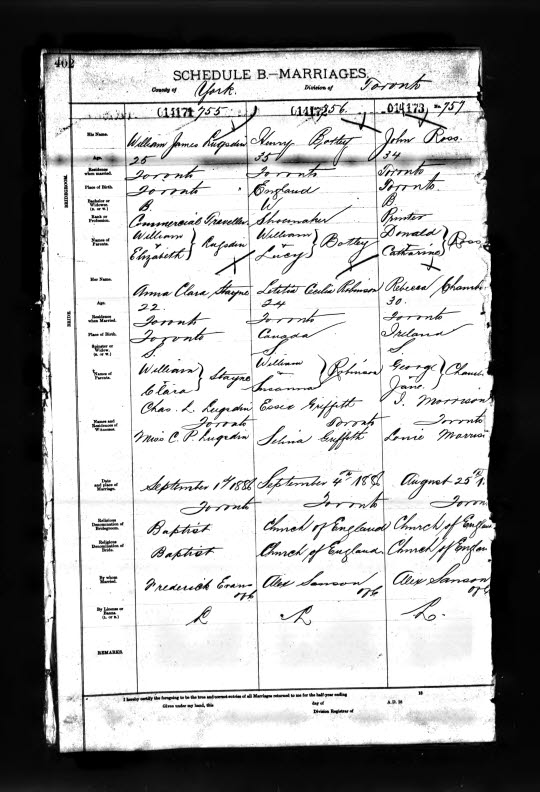 402
SCHEDULE B.—MARRIAGES.
County of York Division of Toronto
014171 755 014172 756 014173 No. 757
BRIDEGROOM.
His Name. William James Lugsdin Henry Botley John Ross.
Age. 25 35 34
Residence when married. Toronto Toronto Toronto
Place of Birth. Toronto England Toronto.
Bachelor or Widower. (B. or W.) B. W. B
Rank or Profession. Commercial Traveller Shoemaker Printer
Names of Parents. William & Elizabeth } Lugsdin William & Lucy } Botley Donald & Catharine } Ross
BRIDE.
Her Name. Anna Clara Stayne Letitia Cecilia Robinson Rebecca Chamb
Age. 22. 24 30.
Residence when Married. Toronto Toronto Toronto
Place of Birth. Toronto Canada Ireland
Spinster or Widow. (S. or W.) S. S S.
Names of Parents. William & Clara } Stayne William & Susanna } Robinson George & Jane. }
Names and Residences of Witnesses. Chas. L. Lugsdin Essex Griffith J. Morrison
Toronto Toronto Toronto
Miss C. P. Lugsdin Selina Griffith Morris
Date and place of Marriage. September 1st 1886 September 4th 188 August 25th 1
Toronto Toronto Toron
Religious Denomination of Bridegroom. Baptist Church of England Church of Englan
Religious Denomination of Bride. Baptist Church of England Church of Englan
By whom Married. Frederick Evans Alex Sanson Alex Sanson
By License or Banns. (L. or B.) L L L.
REMARKS.
I hereby certify the foregoing to be the true and correct entries of all Marriages returned to me for the half-year ending 18
Given under my hand, this day of A.D. 18
Division Registrar of